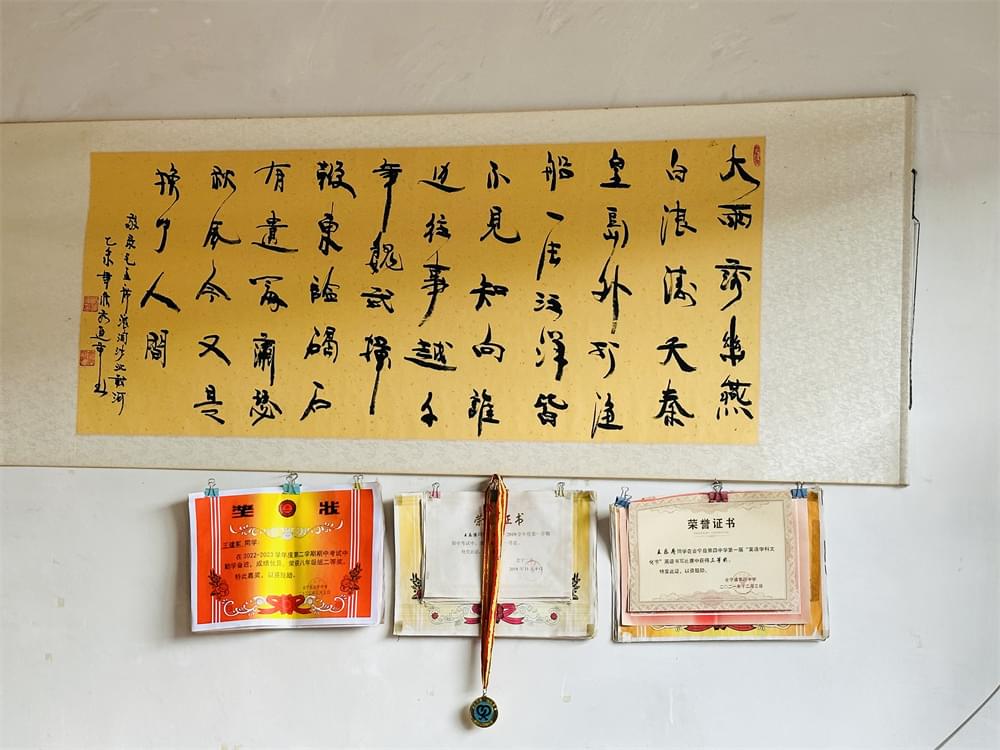 大雨落幽燕
白浪滔天秦
皇島外打漁
船一片汪洋都
不見知向誰
边往事越千
年魏武揮
鞭東臨碣石
有遺篇蕭瑟
秋風今又是
換了人間
敬录毛主席浪淘沙北戴河
乙未
奖 状
同学:
在2022-2023学年度第二学期期中考试中
勤学奋进,成绩优异,荣获八年级组二等奖。
特此嘉奖,以资鼓励。
荣 证书
学年度第一学期
期中考试中
荣誉证书
同学在会宁县第四中学第一届“英语学科文
化节”英语书写比赛中获得三等奖。
特发此证,以资鼓励。
会宁县第四中学
二〇二一年十二月三日